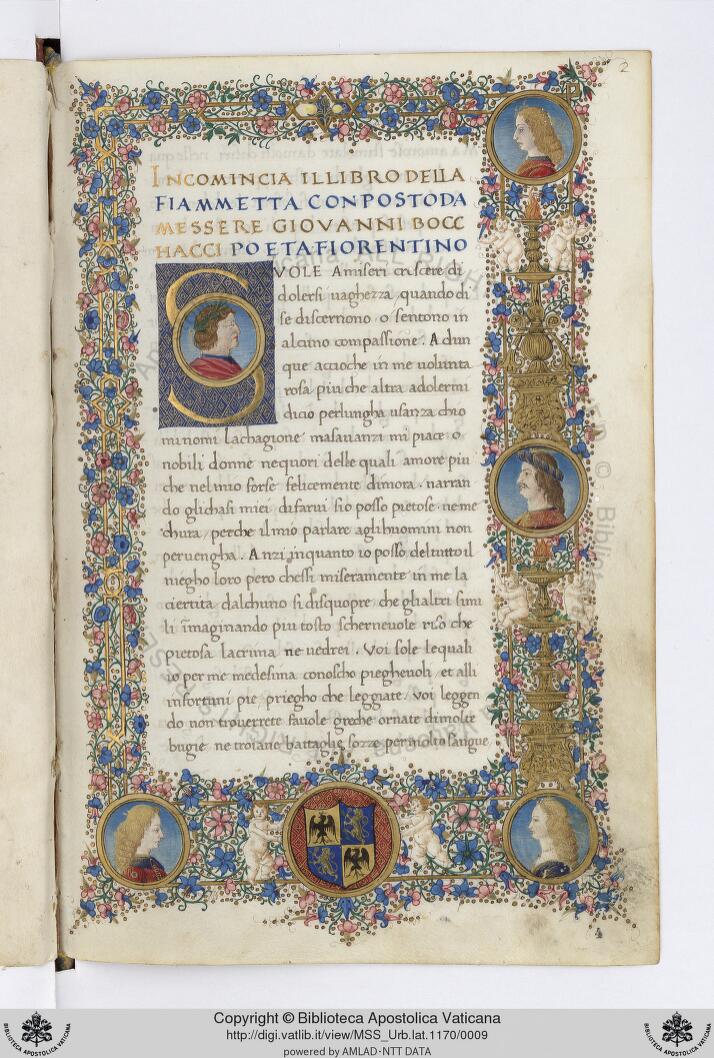 2
INCOMINCIA IL LIBRO DELLA
FIAMMETTA CONPOSTO DA
MESSERE GIOVANNI BOCC
HACCI POETA FIORENTINO
SVOLE Amiseri crescere di
dolersi uaghezza quando di
se discernono o sentono in
alcuno compassione. Adun
que accioche in me uolunta
rosa piu che altra adolermi
dicio perlungha usanza chio
mi nomi lachagione masauanzi mi piace o
nobili donne nequori delle quali amore piu
che nel mio forse felicemente dimora. narran
do glichasi miei difarui sio posso pietose. ne me
chura, perche ilmio parlare aglihuomini non
peruengha. Anzi inquanto io posso deltutto il
niegho loro pero chessi miseramente in me la
cierbita dalchuno si disquopre che glialtri simi
li imaginando piu tosto scherneuole riso che
pietosa lacrima ne uedrei. Voi sole lequali
io per me medesima conoscho pieghevoli et alli
infortuni pie priegho che leggiate. Voi leggen
do non trouerrete fauole greche ornate dimolte
bugie ne troiane battaglie sozze per molto sangue
4
Copyright © Biblioteca Apostolica Vaticana
http://digi.vatlib.it/view/MSS_Urb.lat.1170/0009
powered by AMLAD-NTT DATA